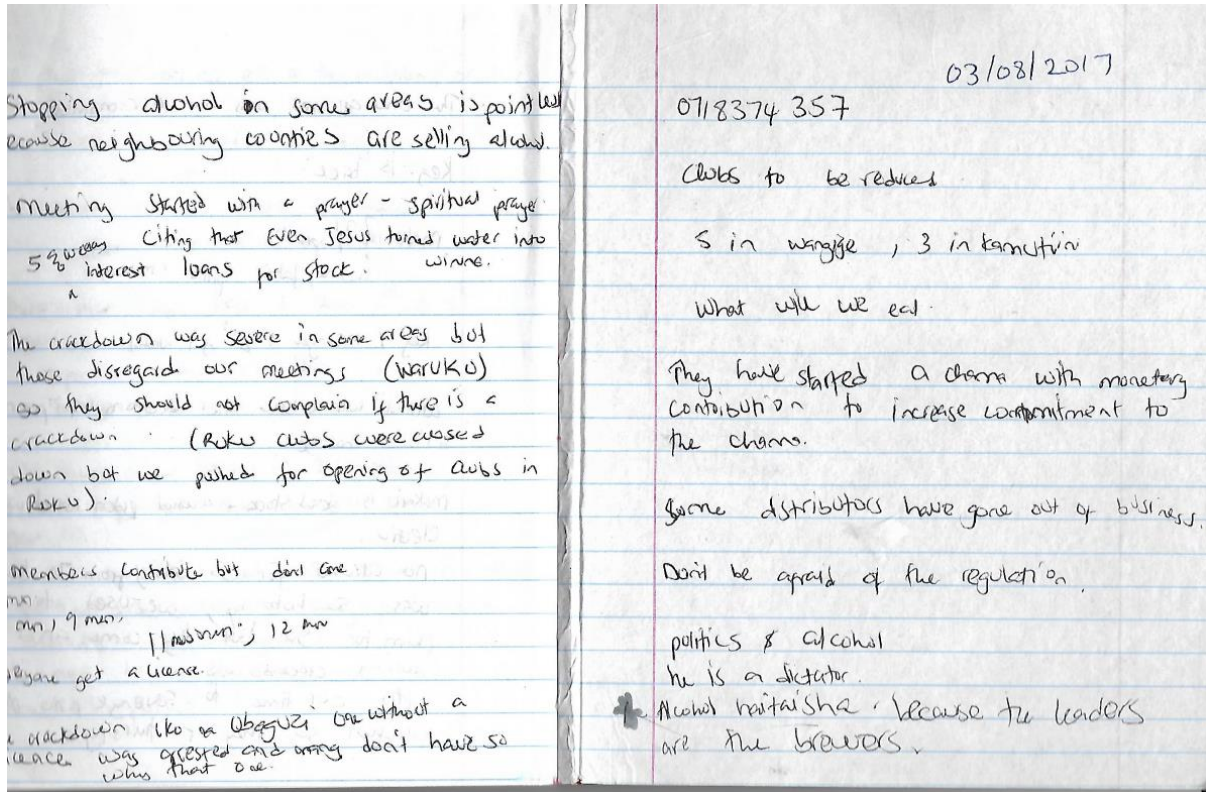 Stopping alcohol in some areas is pointless
ecause neighbouring counties are selling alcohol.
Meeting started with a prayer - spiritual prayer
Citing that Even Jesus turned water into
winne.
5% weekly interest loans for stock.
The crackdown was severe in some areas but
those disregard our meetings (Waruku)
so they should not complain if there is a
crackdown. (Ruku clubs were closed
down but we pushed for opening of clubs in
Ruku).
members contribute but don't come
9 men,
11 12 men
get a license.
crackdown iko na Ubaguzi one without a
was arrested and don't have so
whys that one.
03/08/2017
0718374 357
Clubs to be reduced
5 in wangige, 3 in
What will we eat.
They have started a chama with monetary
contribution to increase commitment to
the chama.
Some distributors have gone out of business.
Don't be afraid of the regulation.
politics & alcohol
he is a dictator.
Alcohol haitaisha. because the leaders
are the brewers.